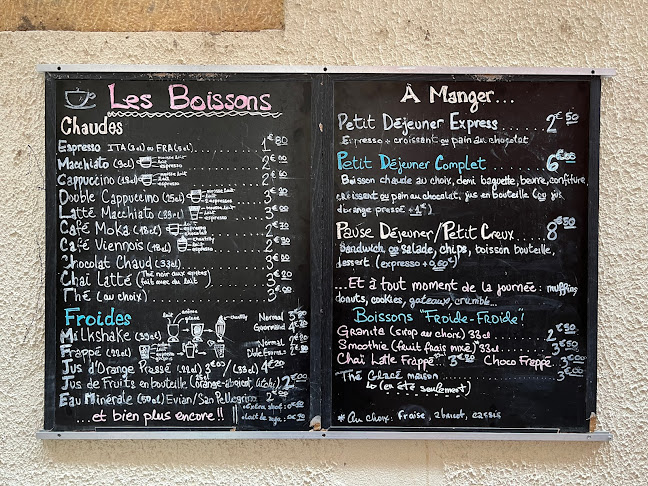 Les Boissons
Chaudes
Espresso ITA (3cl) ou FRA (5cl) 1€80
Macchiato (9cl) mousse lait espresso 2€00
Cappuccino (18cl) mousse lait espresso 2€
Double Cappuccino (25cl) mousse lait espresso 3€90
Latté Macchiato (33cl) mousse lait espresso 3€00
Café Moka (18cl) espresso chocolat 2€70
Café Viennois (18cl) chantilly espresso 2€
Chocolat Chaud (33cl) 3€00
Chaï Latté (Thé noir aux épices fait avec du lait) 3€20
Thé (au choix) 3€00
Froides
Milkshake (33cl) chantilly Normal 3€80
Gourmand 4€
Frappé (22cl) Normal 2€
Jus d'Orange Pressé (22cl) 3€00 / (33cl) 4€20
Jus de Fruits en bouteille (25cl) (orange-abricot, litchi) 2€
Eau Minérale (50cl) Evian/San Pellegrino 2€00
...et bien plus encore!!
+ Extra shot: 0€50
+ Lait de soja: 0€
À Manger...
Petit Déjeuner Express 2€50
Espresso + croissant ou pain au chocolat
Petit Déjeuner Complet 6€00
Boisson chaude au choix, demi baguette, beurre, confiture,
croissant ou pain au chocolat, jus en bouteille (ou jus
d'orange pressé +1€)
Pause Déjeuner/Petit Creux 8€50
Sandwich ou salade, chips, boisson bouteille,
dessert (expresso +0,50€)
...Et à tout moment de la journée: muffins
donuts, cookies, gateaux, crumble...
Boissons "Froide-Froide"
Granité (sirop au choix) 33cl 2€50
Smoothie (fruit frais mixé) 33cl 3€90
Chaï Latte Frappé 3€20 Choco Frappé 3€00
Thé Glacé maison 3€00
↳ (en été seulement)
* Au choix: fraise, abricot, cassis